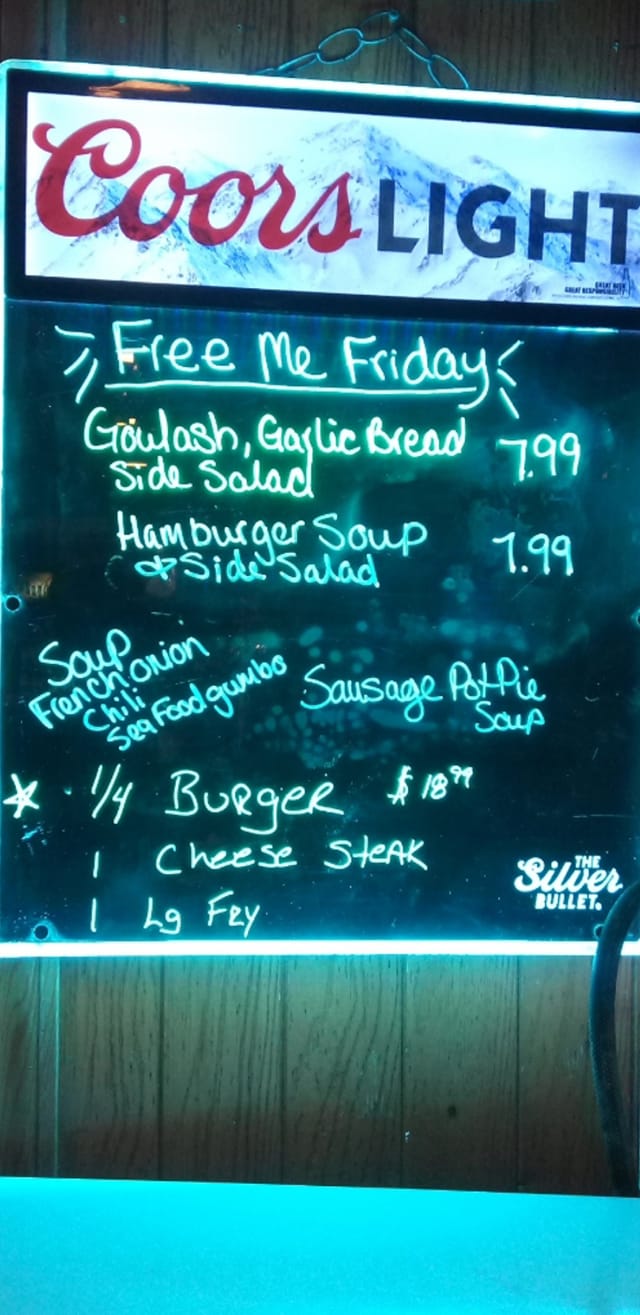 Coors LIGHT
Free Me Friday
Goulash, Garlic Bread 7.99
Side Salad
Hamburger Soup 7.99
& Side Salad
Soup
French Onion
Chili
Sea Food gumbo
Sausage Pot Pie
Soup
1/4 Burger $18.99
1 Cheese Steak
1 Lg Fry
THE
Silver
BULLET.